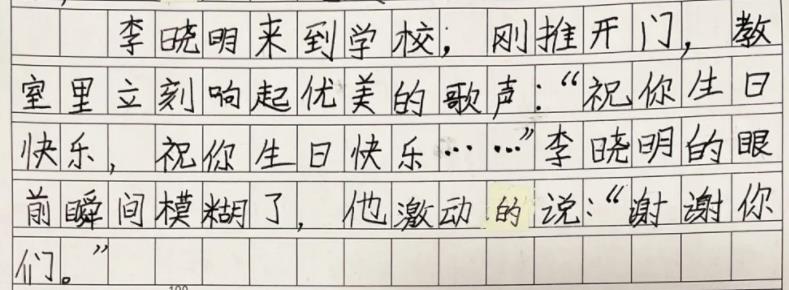 李晓明来到学校，刚推开门，教
室里立刻响起优美的歌声：“祝你生日
快乐，祝你生日快乐……”李晓明的眼
前瞬间模糊了，他激动的说：“谢谢你
们。”